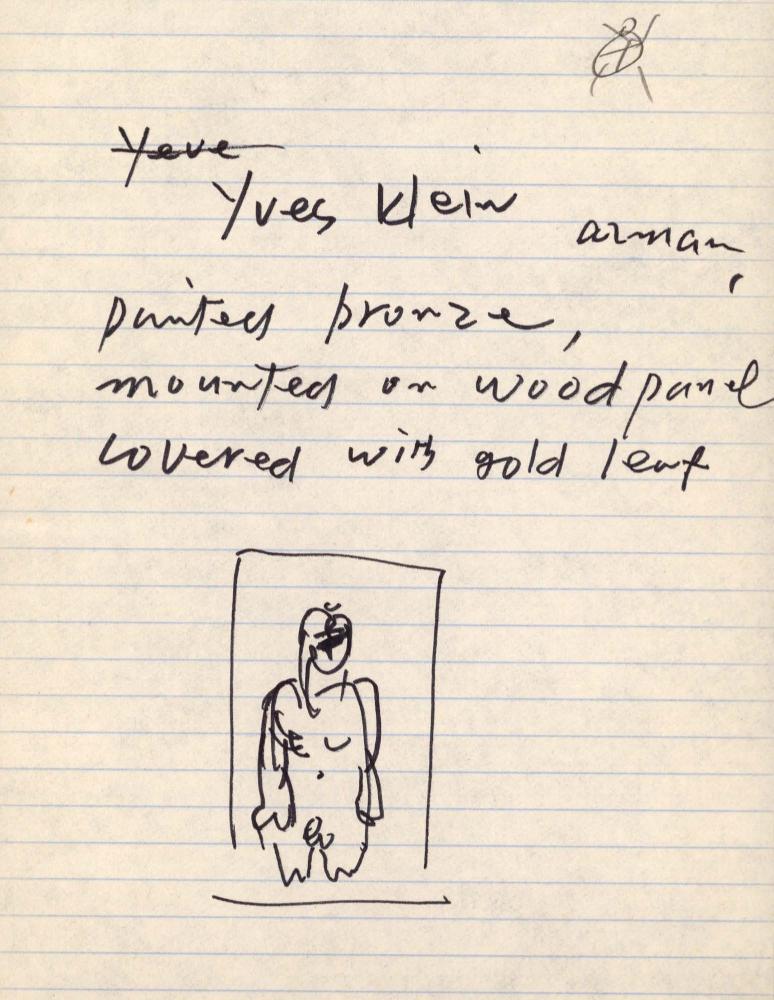 Yeve
Yves Klein
arman,
painted bronze,
mounted on wood panel
covered with gold leaf